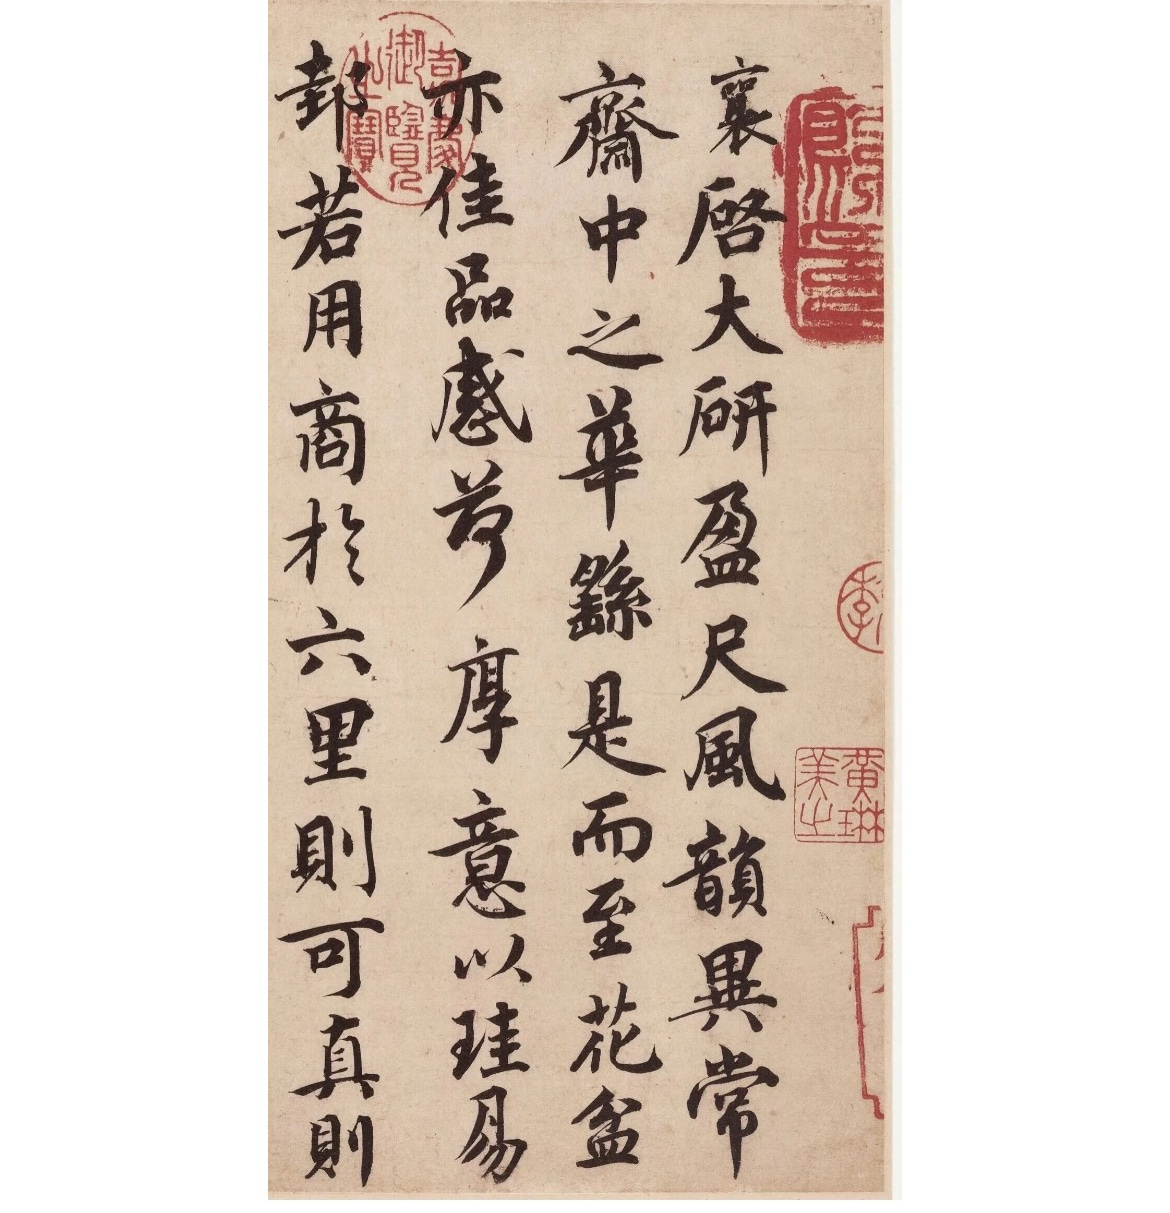 襄啓大研盈尺風韻異常
齋中之華繇是而至花盆
亦佳品感荷厚意以珪易
邽若用商於六里則可真則
嘉慶御覽之寶
黃琳美之